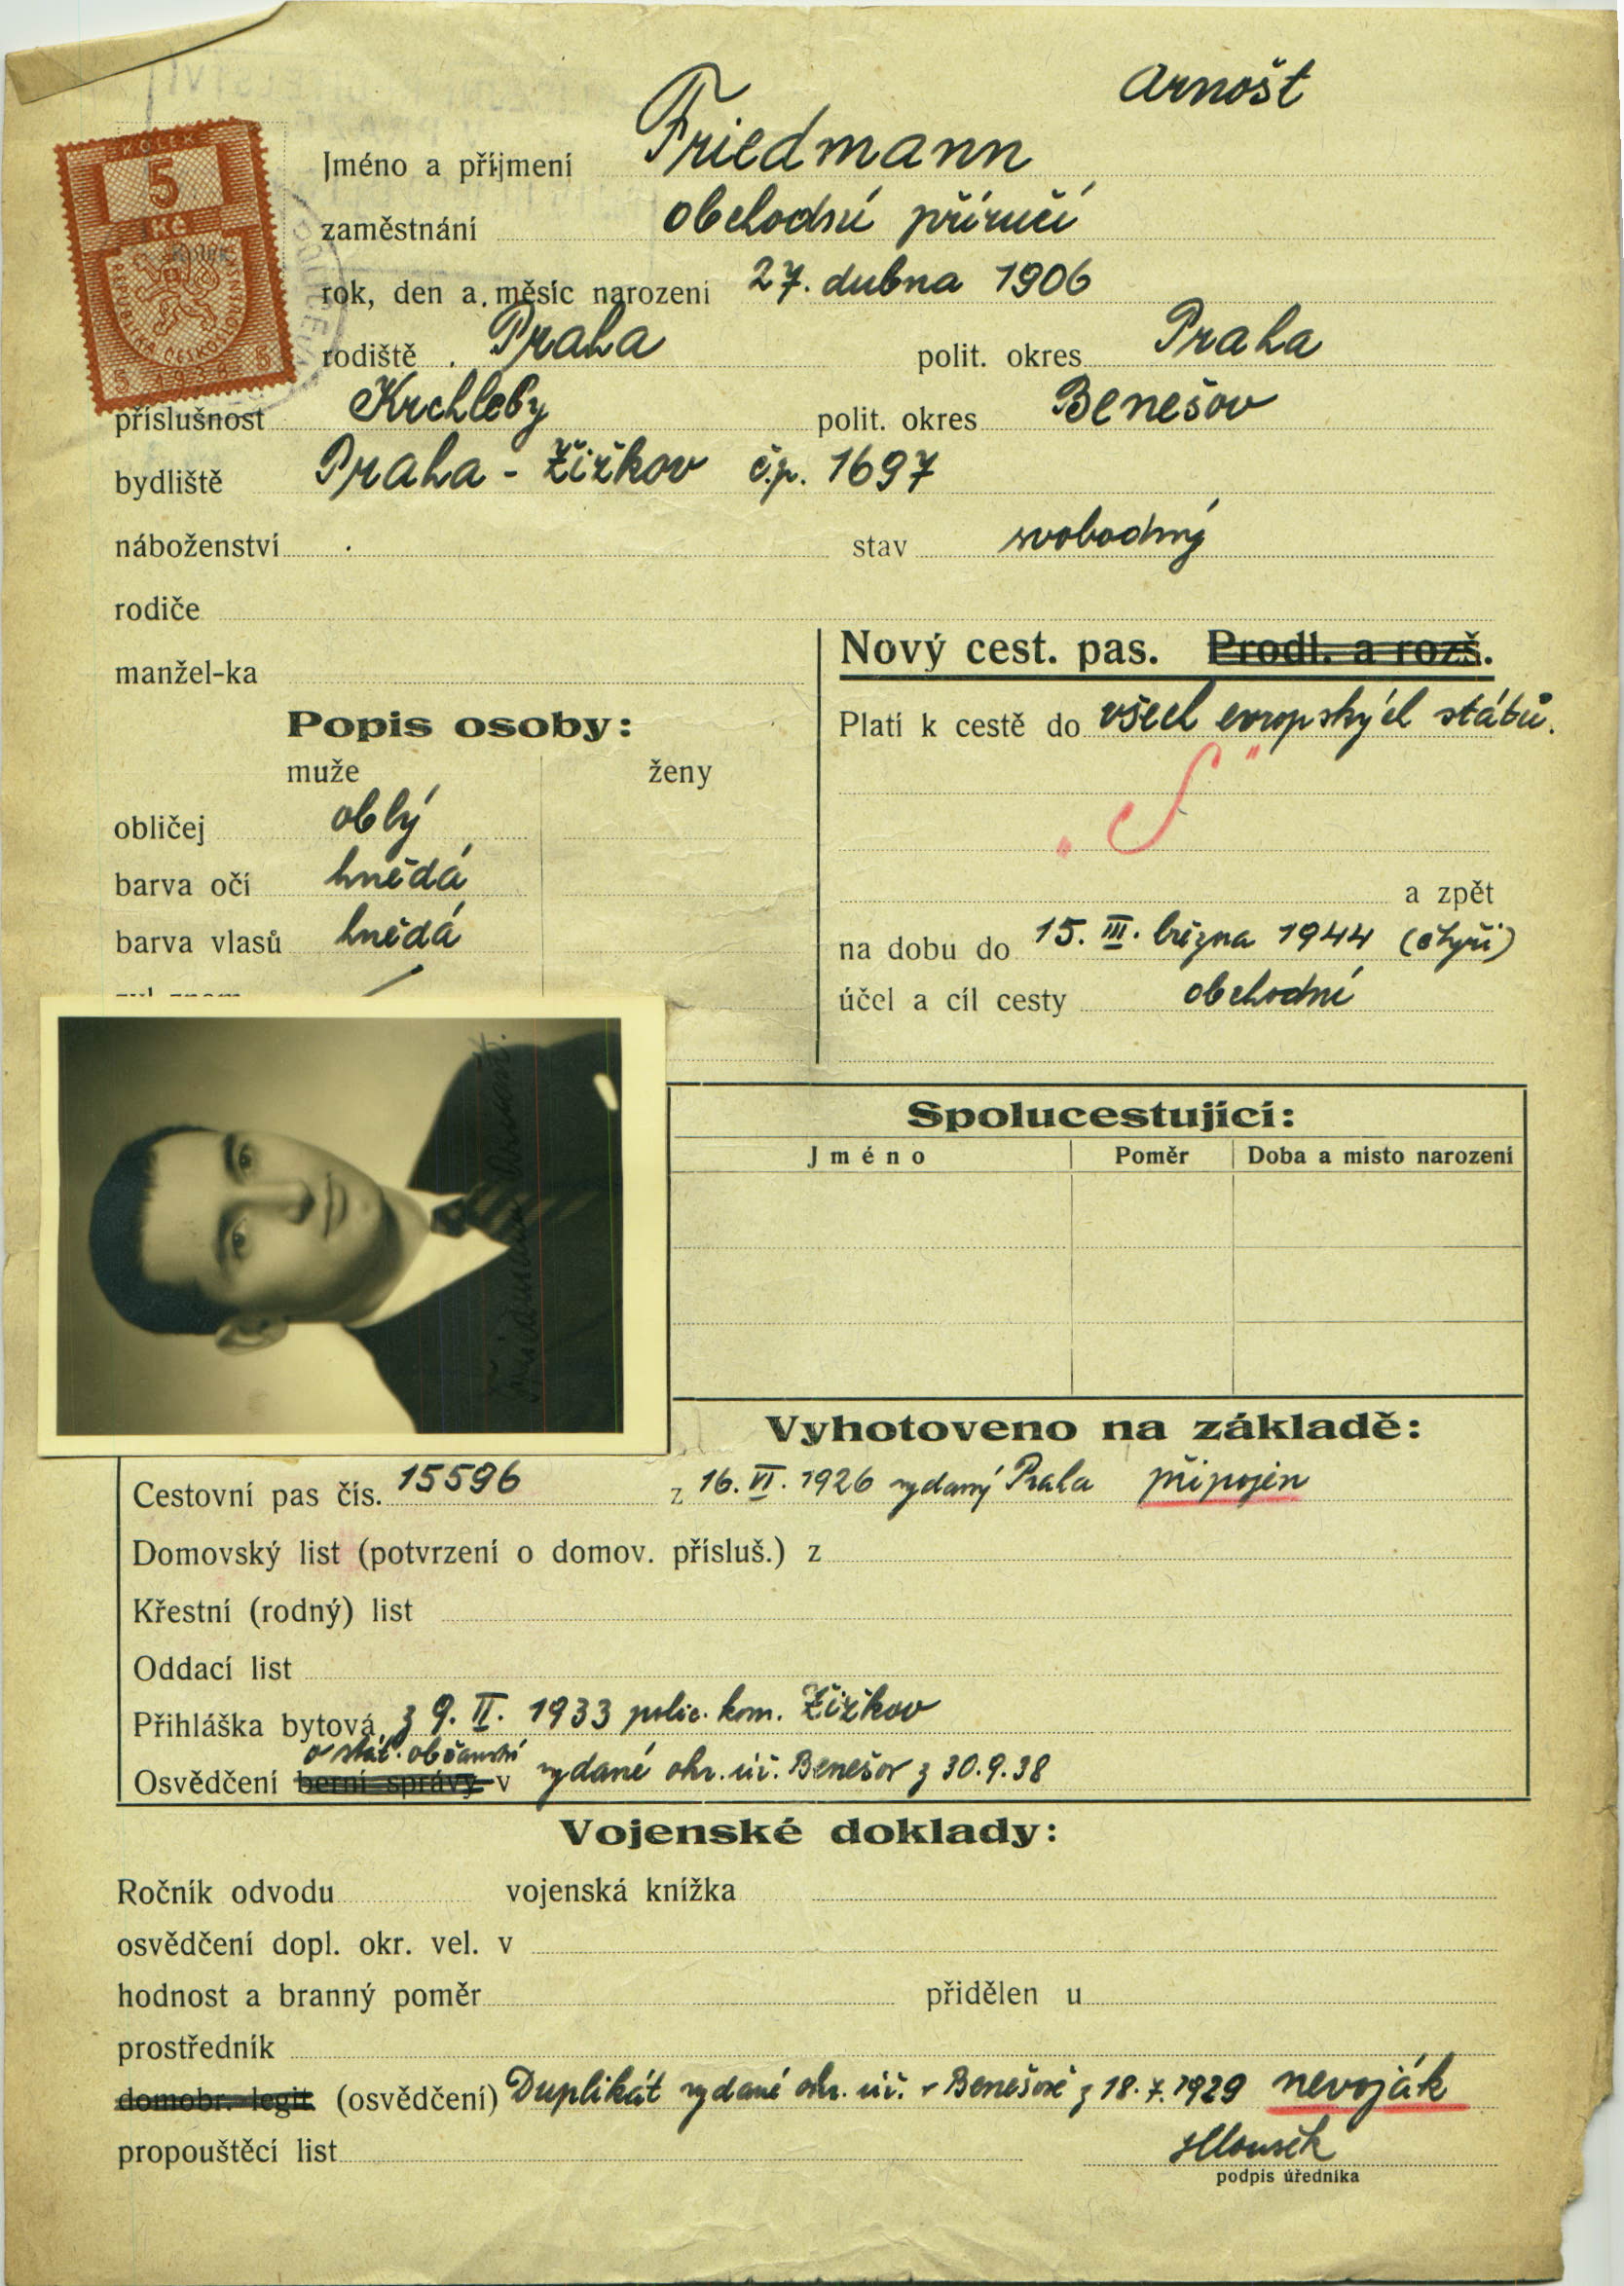 Arnošt
KOLEK
5
Kč
REPUBLIKA ČESKOSLOVENSKÁ
5 1938 5
Jméno a příjmení Friedmann
zaměstnání obchodní příručí
rok, den a měsíc narození 27. dubna 1906
rodiště Praha polit. okres Praha
příslušnost Krchleby polit. okres Benešov
bydliště Praha - Žižkov č.p. 1697
náboženství stav svobodný
rodiče
manžel-ka
Nový cest. pas. Prodl. a rozš.
Popis osoby:
muže ženy
obličej oblý
barva očí hnědá
barva vlasů hnědá
zvl. znam.
Platí k cestě do všech evropských států.
„S"
a zpět
na dobu do 15. III. března 1944 (čtyři)
účel a cíl cesty obchodní
Friedmann Arnošt.
Spolucestující:
Jméno Poměr Doba a místo narození
Vyhotoveno na základě:
Cestovní pas čís. 15596 z 16. VI. 1926 vydaný Praha připojen
Domovský list (potvrzení o domov. přísluš.) z
Křestní (rodný) list
Oddací list
Přihláška bytová z 9. II. 1933 polic. kom. Žižkov
o stát. občanství
Osvědčení berní správy v vydané okr. úř. Benešov z 30.9.38
Vojenské doklady:
Ročník odvodu vojenská knížka
osvědčení dopl. okr. vel. v
hodnost a branný poměr přidělen u
prostředník
domobr. legit. (osvědčení) Duplikát vydané okr. úř. v Benešově z 18.7.1929 nevoják
propouštěcí list
podpis úředníka